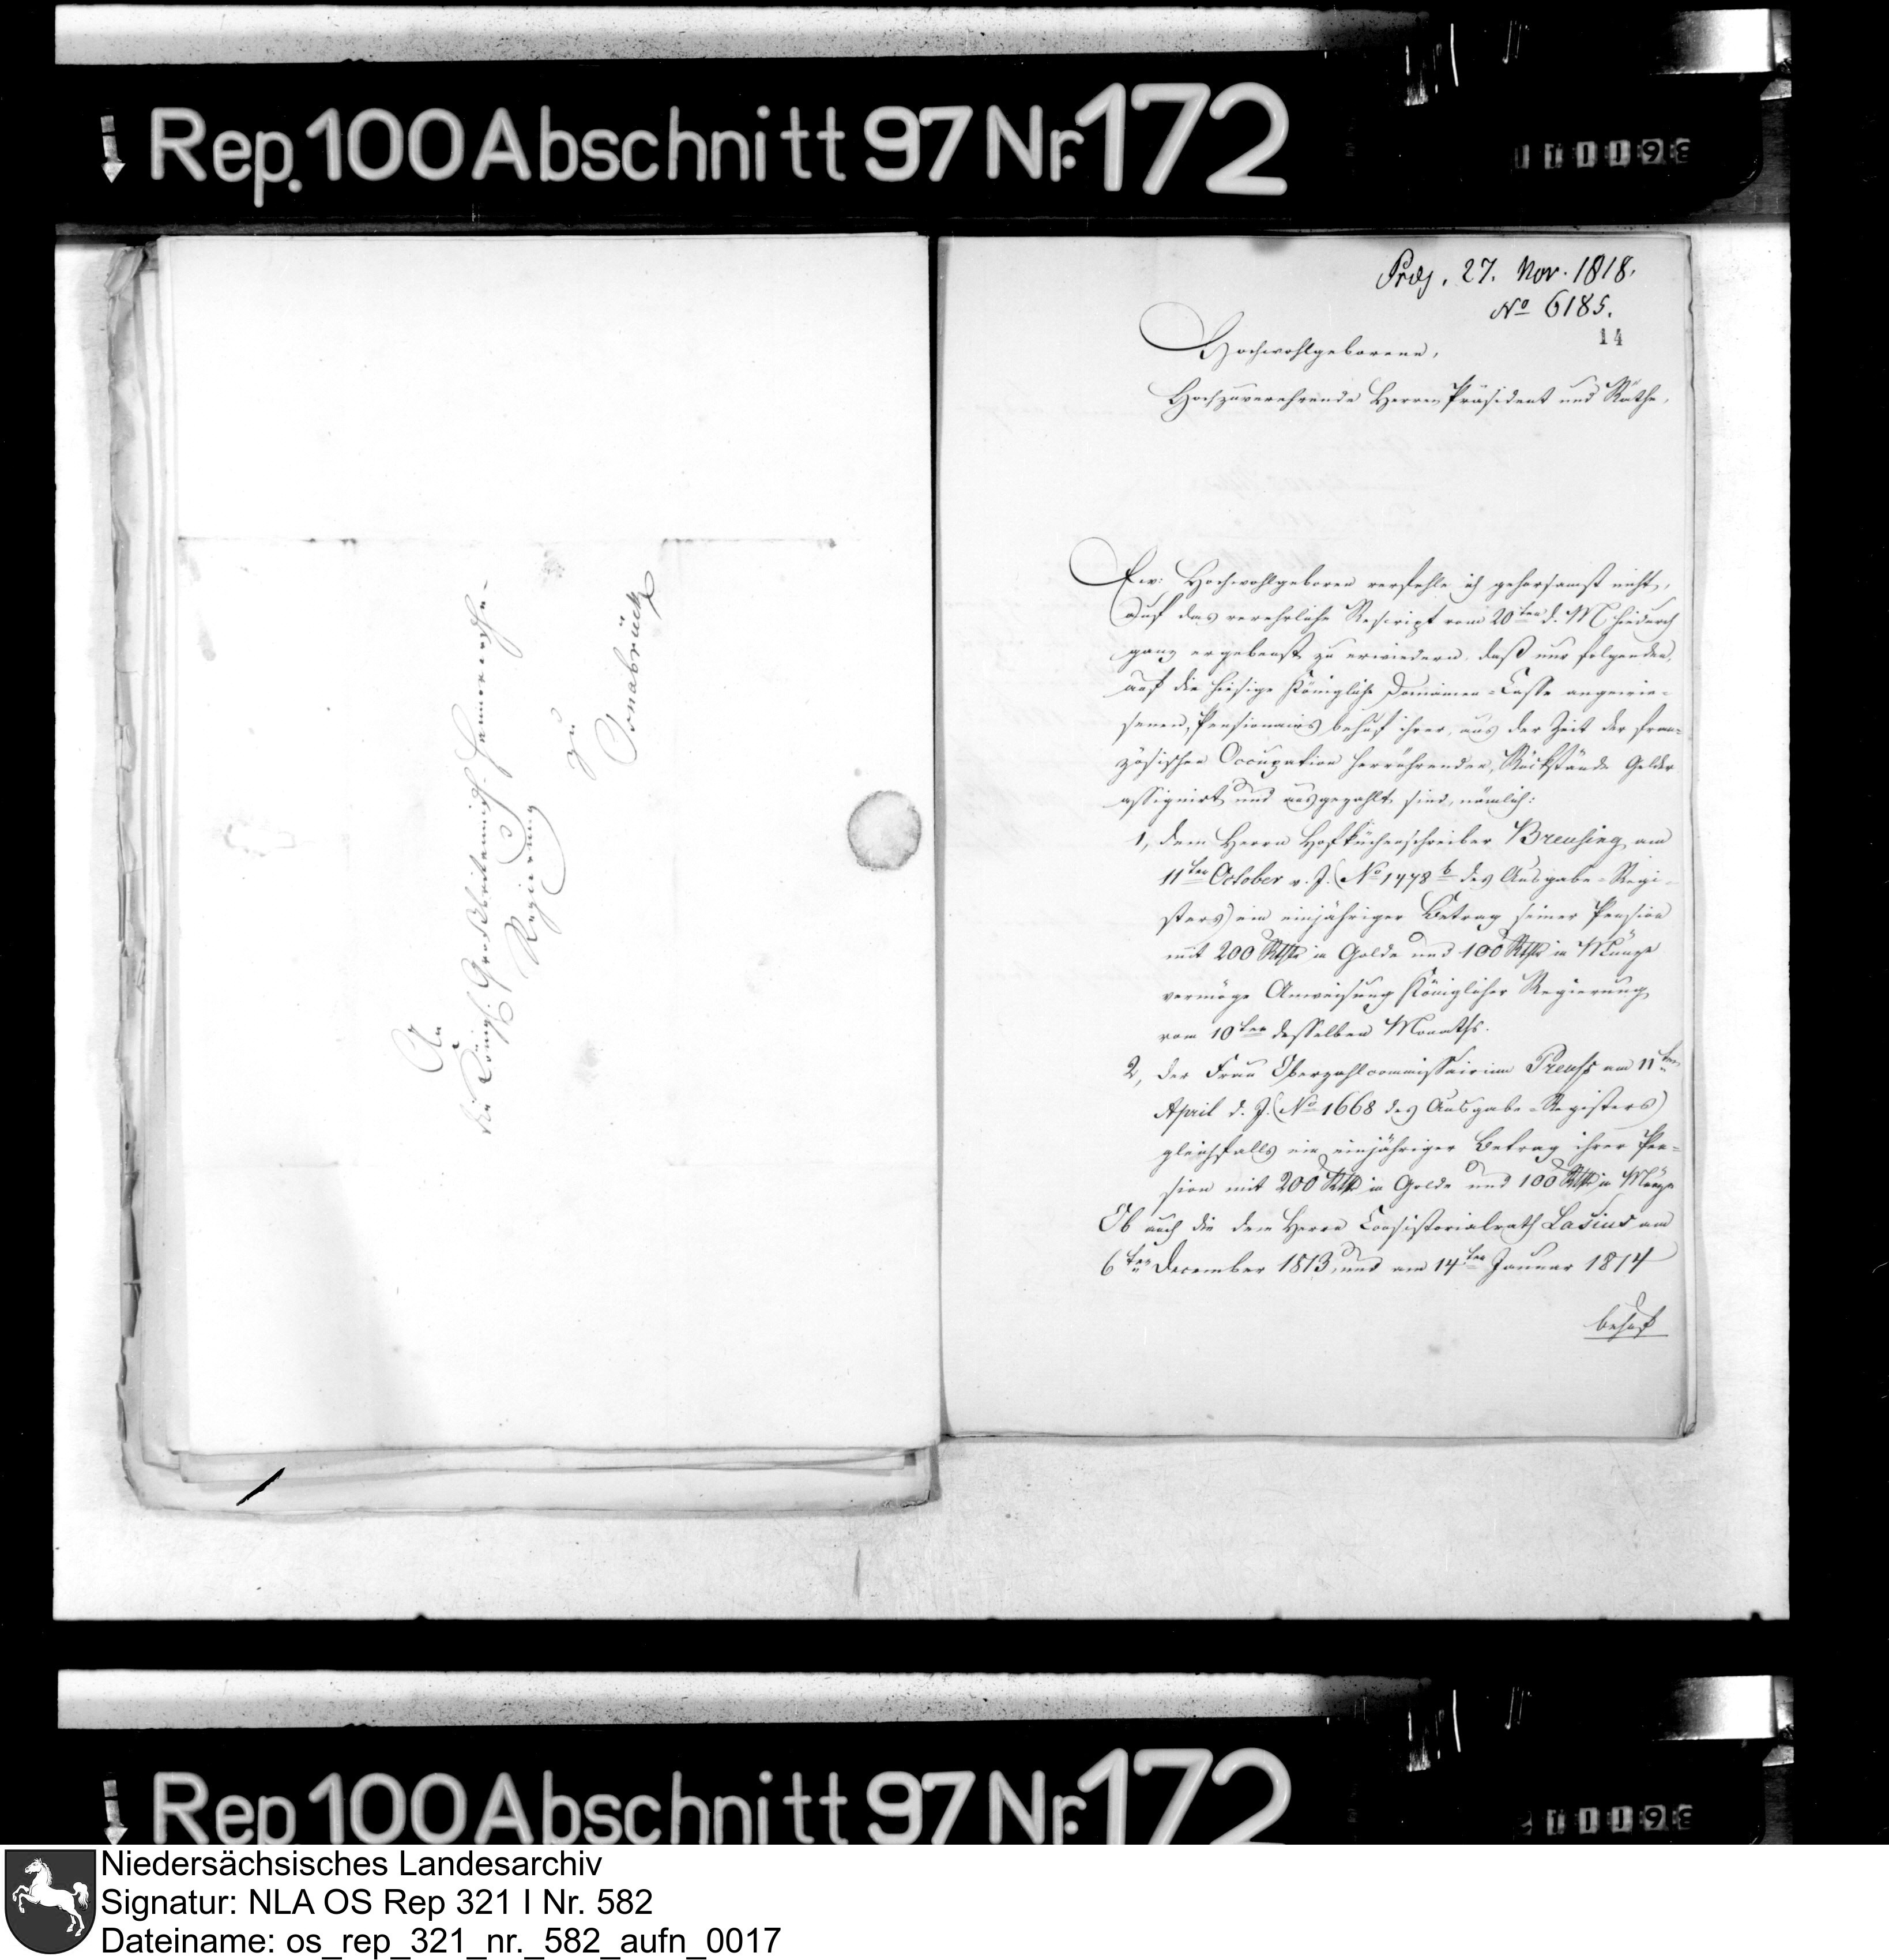 Rep. 100 Abschnitt 97 Nr. 172
An
die Königl. Großbritannisch-Hannoversche-
Regierung
zu
Osnabrück
Präs. 27. Nov. 1818.
No 6185.
14
Hochwohlgeborene,
Hochzuverehrende Herren Präsident und Räthe,
Ew: Hochwohlgeboren verfehle ich gehorsamst nicht,
auf das verehrliche Rescript vom 20ten d. M. hiedurch
ganz ergebenst zu erwiedern, daß nur folgenden,
auf die hiesige Königliche Domainen-Casse angewie-
senen, Pensionairs behuf ihrer, aus der Zeit der fran-
zösischen Occupation herrührenden, Rückstände Gelder
assignirt und ausgezahlt sind, nämlich:
1, dem Herrn Hofküchenschreiber Breusing am
11ten October v. J. (No 1478 b des Ausgabe-Regi-
sters) ein einjähriger Betrag seiner Pension
mit 200 Rthlr in Golde und 100 Rthlr in Münze
vermöge Anweisung Königlicher Regierung
vom 10ten desselben Monaths.
2, der Frau Oberzahlcommissairinn Preuss am 11ten
April d. J. (No 1668 des Ausgabe-Registers)
gleichfalls ein einjähriger Betrag ihrer Pen-
sion mit 200 Rthlr in Golde und 100 Rthlr in Münze
Ob auch die dem Herrn Consistorialrath Lasius am
6ten December 1813, und am 14ten Januar 1814
behuf
Rep 100 Abschnitt 97 Nr. 172
Niedersächsisches Landesarchiv
Signatur: NLA OS Rep 321 I Nr. 582
Dateiname: os_rep_321_nr._582_aufn_0017